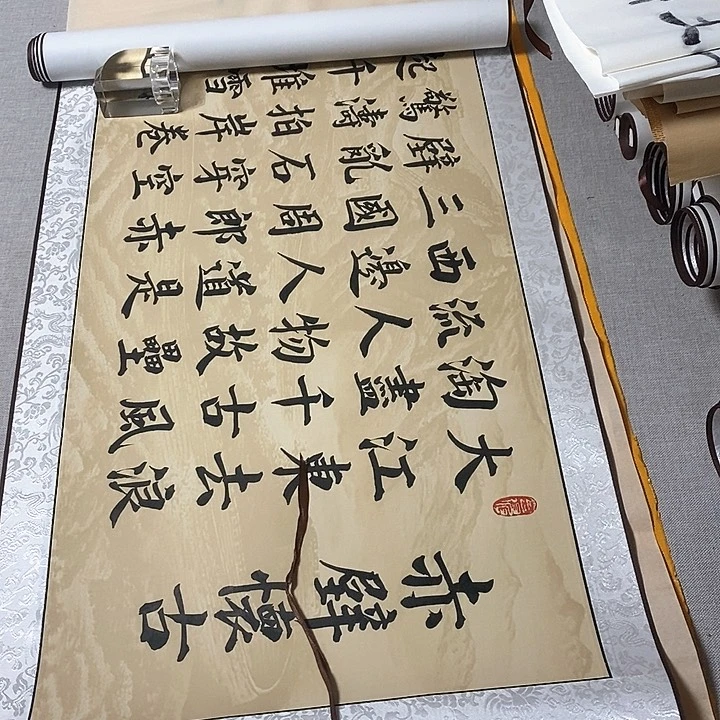 赤壁懷古
大江東去浪
淘盡千古風
流人物故壘
西邊人道是
三國周郎赤
壁亂石穿空
驚濤拍岸卷
起千堆雪